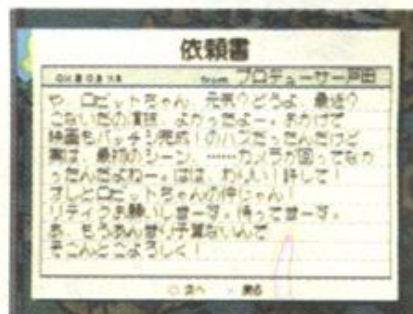 依頼書
from プロデューサー戸田
や、ロビットちゃん、元気?どうよ、最近?
こないだの演技、よかったよー。おかげで
映画もバッチシ完成!のハズだったんだけど
実は、最初のシーン、……カメラが回ってなか
ったんだよねー。はは、わりい!許して!
オレとロビットちゃんの仲じゃん!
リテイクお願いしまーす。待ってまーす。
あ、もうあんまり予算ないんで
そこんとこよろしく!
○ 次へ × 戻る